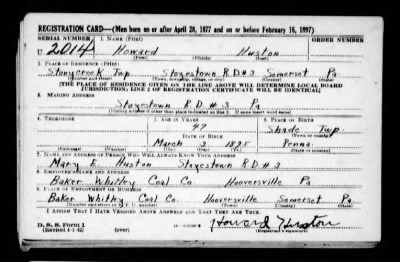 REGISTRATION CARD—(Men born on or after April 28, 1877 and on or before February 16, 1897)
SERIAL NUMBER 1. NAME (Print) ORDER NUMBER
U 2014 Howard Huston
(First) (Middle) (Last)
2. PLACE OF RESIDENCE (Print)
Stonycreek Twp Stoyestown R.D.#3 Somerset Pa
(Number and street) (Town, township, village, or city) (County) (State)
[THE PLACE OF RESIDENCE GIVEN ON THE LINE ABOVE WILL DETERMINE LOCAL BOARD
JURISDICTION; LINE 2 OF REGISTRATION CERTIFICATE WILL BE IDENTICAL]
3. MAILING ADDRESS
Stoyestown R.D.#3 Pa
4. TELEPHONE 5. AGE IN YEARS 6. PLACE OF BIRTH
47 Shade Twp
DATE OF BIRTH (Town or county)
March 3 1895 Penna.
(Exchange) (Number) (Mo.) (Day) (Yr.) (State or country)
7. NAME AND ADDRESS OF PERSON WHO WILL ALWAYS KNOW YOUR ADDRESS
Mary E. Huston Stoyestown R.D.#3
8. EMPLOYER'S NAME AND ADDRESS
Baker Whitley Coal Co Hooversville Pa
9. PLACE OF EMPLOYMENT OR BUSINESS
Baker Whitley Coal Co. Hooversville Somerset Pa
(Number and street or R. F. D. number) (Town) (County) (State)
I AFFIRM THAT I HAVE VERIFIED ABOVE ANSWERS AND THAT THEY ARE TRUE.
D. S. S. Form 1 Howard Huston
(Revised 4-1-42) (over) (Registrant's signature)